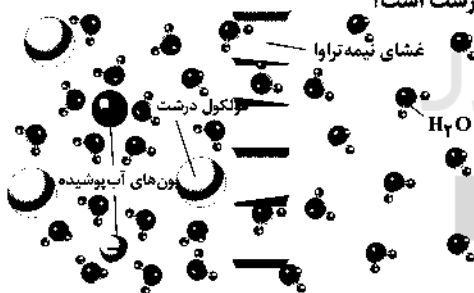 درست است؟
غشای نیمه‌تراوا
مولکول درشت
H۲O
یون‌های آب‌پوشیده